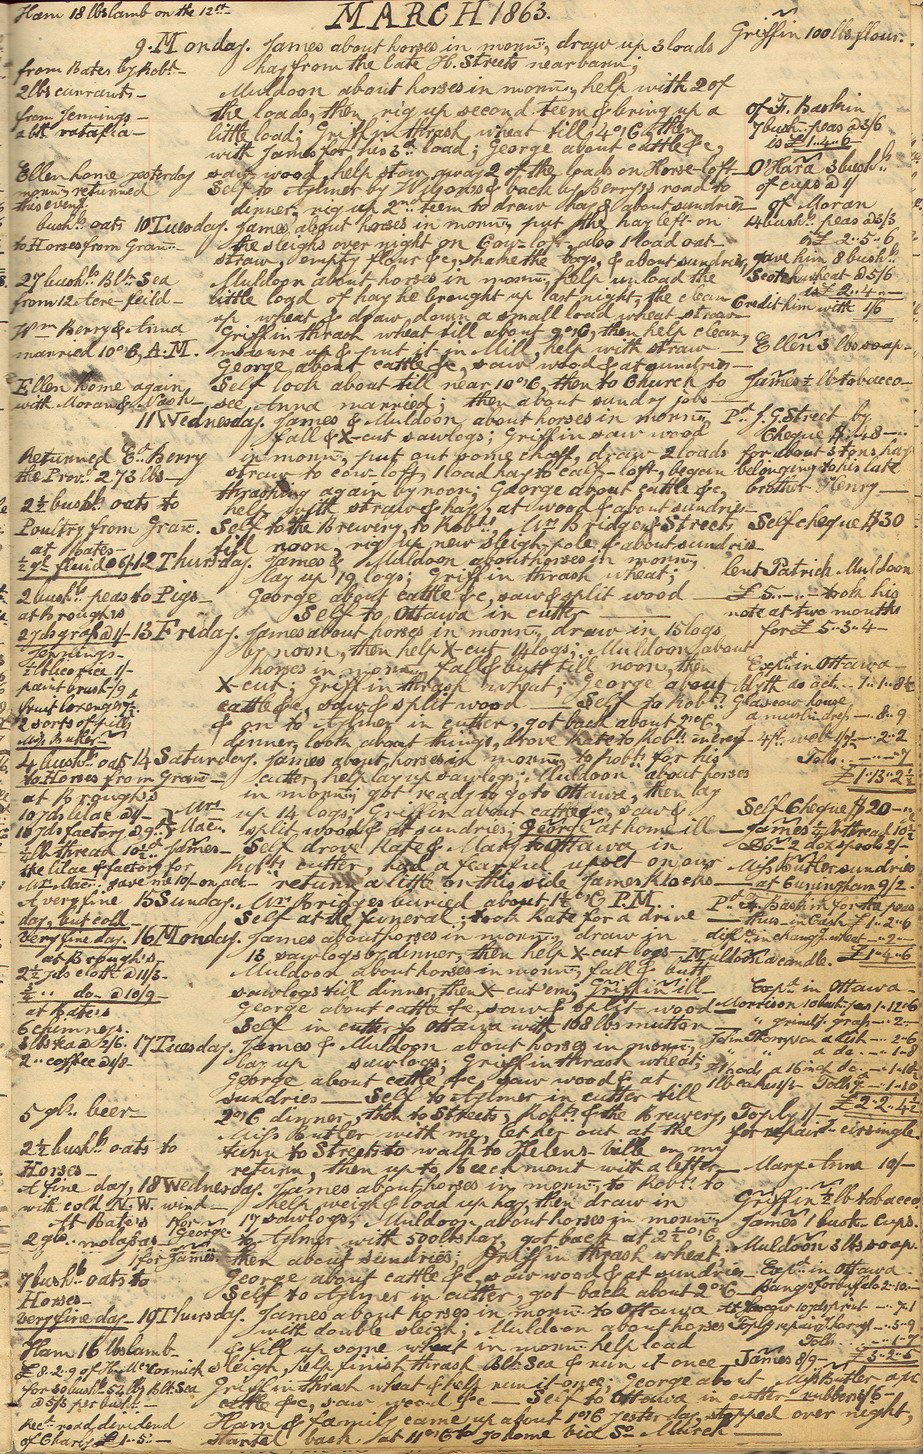 Ham 18 lbs lamb on the 12th
MARCH 1863.
Griffin 100 lbs flour.
9. Monday. James about horses in morng, draw up 3 loads
hay from the late H. Streets near barn;
from Bates by Robt
2 lbs currants
Muldoon about horses in morng, help with 2 of
from Jennings
the loads, then rig up second teem & bring up a
little load; Griffin thrash wheat till 4 o'C, then
with James for his 3d load; George about cattle &c,
saw wood, help stow away 2 of the loads on Horse-loft
Self to Aylmer by Wilsons & back by Berry's road to
dinner, rig up 2nd teem to draw hay & about sundries
of F. Baskin
7 bush. peas @ 3/6
is £1..4..6
O'Hara 3 bushls
of cups @ 1/
Ellen home yesterday
morng returned
this eveng.
bushls oats
to Horses from Gran.
10 Tuesday. James about horses in morng, put the hay left on
the sleighs over night on Cow-loft, also 1 load oat
straw, empty flour &c, shake the bags, & about sundries,
Muldoon about horses in morng, help unload the
little load of hay he brought up last night, the clean
up wheat & draw down a small load wheat straw
Griffin thrash wheat till about 9 o'C, then help clean,
measure up & put it in Mill, help with straw
George about cattle &c, saw wood & at sundries
Self look about till near 10 o'C, then to Church to
see Anna married; then about sundry jobs
of Moran
14 bushls peas @ 3/3
is £2..5..6
gave him 8 bushls
Scotch wheat @ 5/6
is £2..4..
Credit him with 1/6
27 bushls Blk Sea
from 12 Acre-feild
Wm Berry & Anna
married 10 o'C, A.M.
Ellen 3 lbs soap
Ellen home again
with Moran & Nash
James ½ lb tobacco
11 Wednesday. James & Muldoon about horses in morng
fall & X-cut sawlogs; Griffin saw wood
in morng, put out some chaff, draw 2 loads
straw to cow-loft, 1 load hay to calf-loft, begain
thrashing again by noon; George about cattle &c,
help with straw & hay, at wood & about sundries
Self to the Brewery, to Robts, Mrs Bridges & Streets
till noon, rig up new sleigh pole & about sundries
Pd J.G. Street by
Cheque $ 48
for about 3 tons hay
belonging to his late
brother Henry
Returned Ed Berry
the Provr 273 lbs
2½ bushls oats to
Poultry from Gran.
Self cheque $30
at Bates
½ gl. fluid @ 6/
12 Thursday. James & Muldoon about horses in morng
lay up 19 logs; Griffin thrash wheat;
George about cattle &c, saw & split wood
Self to Ottawa in cutter
2 bushls peas to Pigs
lent Patrick Muldoon
£5..-..- took his
note at two months
for £5..3..4
at Brough's
13 Friday. James about horses in morng, draw in 15 logs
by noon, then help X-cut 14 logs; Muldoon about
horses in morng, fall & butt till noon, then
X-cut; Griffin thrash wheat; George about
cattle &c, saw & split wood Self to Robts
& on to Aylmer in cutter, got back about 2 o'C
dinner, look about things, drove Kate to Robts in eveg
Jennings
½ lb licorice 1/
paint brush /9
2 sorts of pills
Miss Baker
Expts in Ottawa
Blyth as act. 1..1..8½
a muslin dress .. 8..9
Tolls
£1..13..2½
4 bushls oats
to Horses from Gran
14 Saturday. James about horses in morng, to Robts for his
cutter, help lay up sawlogs; Muldoon about horses
in morng got ready to go to Ottawa, then lay
up 14 logs; Griffin about cattle &c, saw &
split wood & at sundries; George at home ill
Self drove Kate & Mary to Ottawa in
Robts cutter, had a fearful upset on our
return a little on this side James Klocks
at Brough's
10 yds lilac @ 1/
10 yds factory @ 9d
¼ lb thread 10½d James
the lilac & factory for
Mrs Mac. gave me 10/ on act
Self Cheque $20
James ¼ lb thread 10½
Do 2 doz spools 2/
Miss Butler sundries
at Cuningham 9/2
A very fine
day, but cold
15 Sunday. Mr Bridges buried about 1½ o'C P.M.
Self at the funeral; took Kate for a drive
Pd F. Baskin for the peas
thus in Cash £1..2..6
diffce in changg wheat ..2..
£1..4..6
very fine day.
16 Monday. James about horses in morng, draw in
18 sawlogs by dinner, then help X-cut logs
Muldoon about horses in morng, fall & butt
sawlogs till dinner, then X-cut 'em; Griffin ill
George about cattle &c, saw & split wood
Self in cutter to Ottawa with 168 lbs mutton
Muldoon a candle.
at Brough's
2½ yds cloth @ 11/3
½ .. do. @ 10/9
at Bates
6 chimneys.
3 lbs tea @ 2/6.
2 .. coffee @ 1/8
Expts in Ottawa
Morrison 10 bush. peas 1..12..6
" grindg grain ..2..
John Thompson a dish .. 2-6
17 Tuesday. James & Muldoon about horses in morng,
lay up sawlogs; Griffin thrash wheat;
George about cattle &c, saw wood & at
sundries Self to Aylmer in cutter till
2 o'C dinner, then to Streets, Robts & the Brewery,
Miss Butler with me, let her out at the
turn to Streets to walk to Helens-ville on my
return, then up to beechmont with a letter
£2..2..4½
Toply 1/
for repairg circingle
5 gls. beer
2½ bushls oats to
Horses
Mary Anne 10/
A fine day,
with cold N.W. wind
18 Wednesday. James about horses in morng to Robts to
help weigh & load up hay, then draw in
17 sawlogs; Muldoon about horses in morng
to Aylmer with 500 lbs hay, got back at 2½ o'C,
then about sundries; Griffin thrash wheat
George about cattle &c, saw wood & at sundries
Self to Aylmer in cutter, got back about 2 o'C
At Bates
2 gls. molasses
1 for George
1 for James
Griffin ½ lb tobacco
James 1 bush. cups.
Muldoon 3 lbs soap.
7 bushls oats to
Horses
very fine day
19 Thursday. James about horses in morng to Ottawa
with double sleigh; Muldoon about horses
& fill up some wheat in morng help load
sleigh, help finish thrash Blk Sea & run it once
Griffin thrash wheat & help run it once; George about
cattle &c, saw wood &c Self to Ottawa in cutter
Ham & family came up about 1 o'C yesterday, stopped over night,
started back at 11 o'C to go home bid Sd March
Expts in Ottawa
Toply repairg harns ..5..9
Tolls ..1..7
£3..2..5
James 8/9
Miss Butler a pr
rubbers 6/
Ham 16 lbs lamb
£8.2.9 of Ths McCormick
for 30 bushls 54 lbs Blk Sea
@ 5/3 per bushl
Recd road dividend
of Charly £1..5..